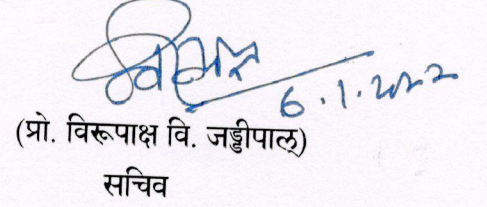 6.1.2022
(प्रो. विरूपाक्ष वि. जड्डीपाल्)
सचिव